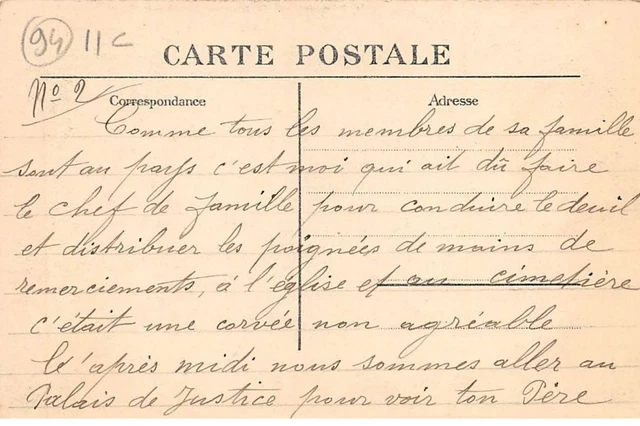 94 11 C
CARTE POSTALE
No 2
Correspondance Adresse
Comme tous les membres de sa famille
sont au pays c'est moi qui ait dû faire
le chef de famille pour conduire le deuil
et distribuer les poignées de mains de
remerciements, à l'église et au cimetière
c'était une corvée non agréable
le'après midi nous sommes aller au
Palais de Justice pour voir ton Père